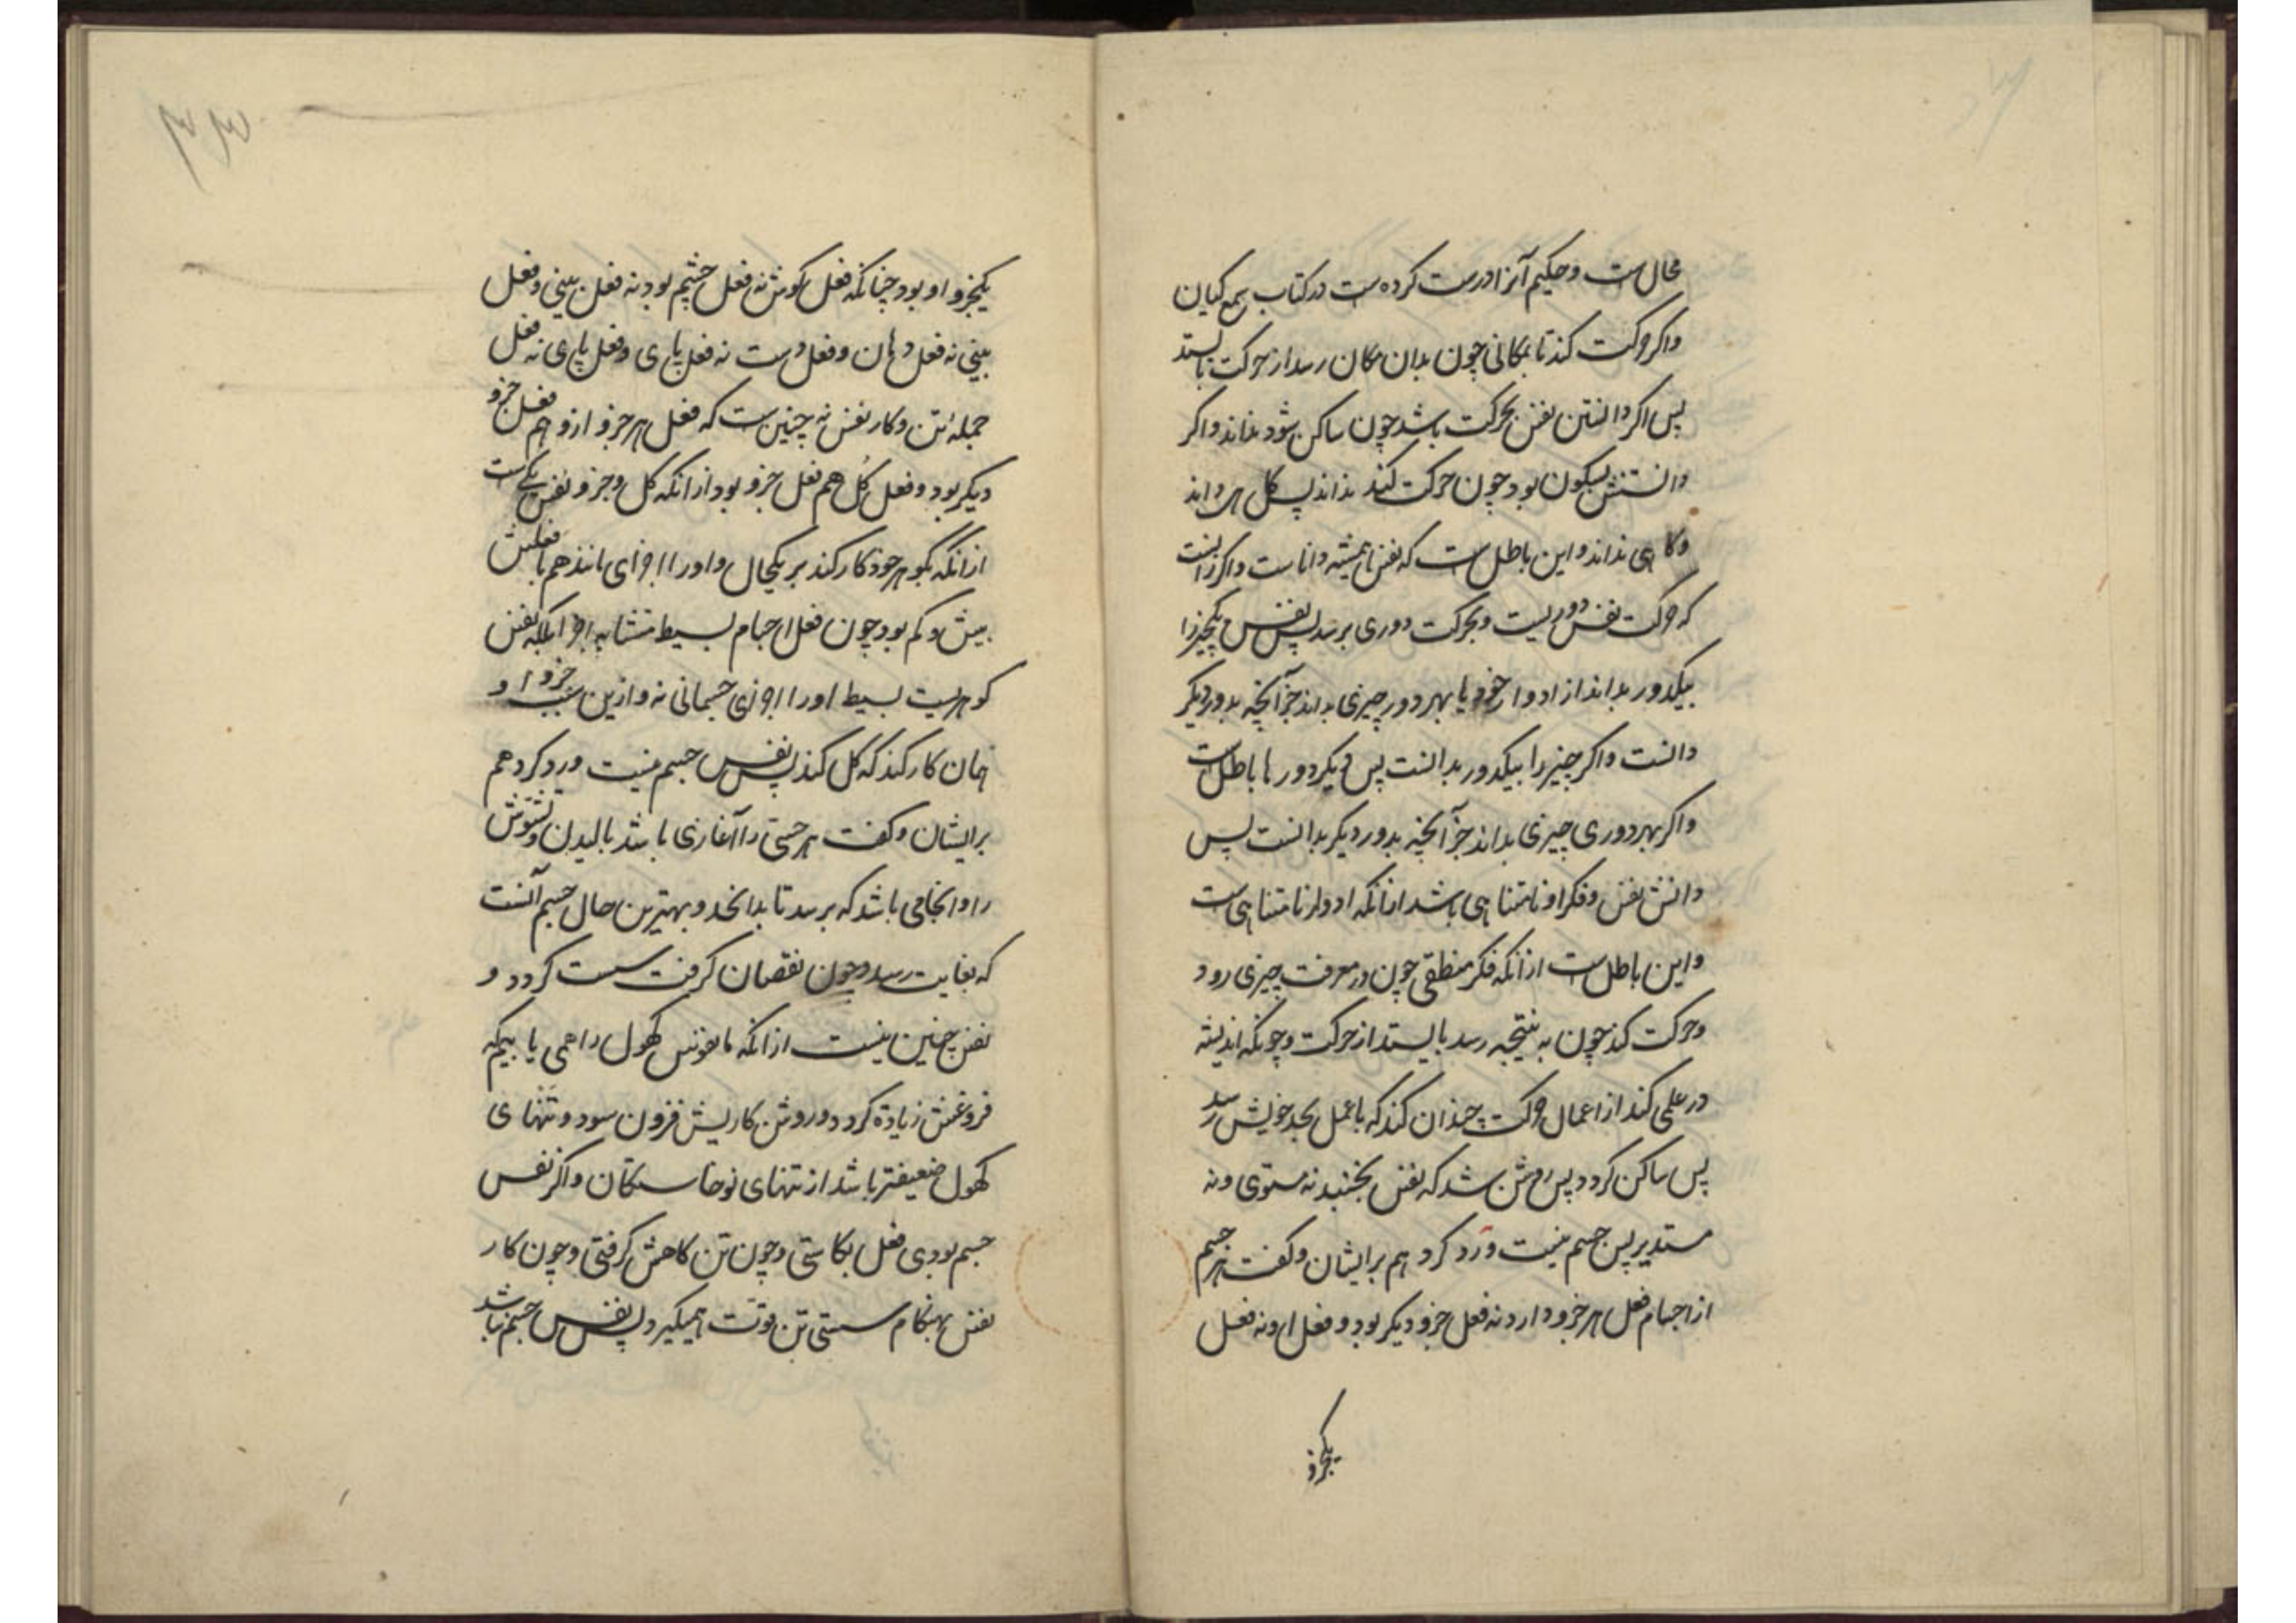 محالست و حکیم آنرا درست کرده‌ست در کتاب سمع کیان
واکر حرکت کند تا بمکانی چون بدان مکان رسد از حرکت بایستد
پس اکر دانستن نفس بحرکت باشد چون ساکن شود نداند واکر
دانستنش بسکون بود چون حرکت کند نداند پس کاهی داند
و کاهی نداند و این باطل‌ست که نفس همیشه داناست واکر
که حرکت نفس دوریست و بحرکت دوری برسد پس نفس یکچیز را
بیکدور بداند از ادوار خود یا بهر دور چیزی بداند جز آنچه بدور دیکر
دانست واکر چیز را بیکدور بدانست پس دیکر دورها باطل‌ست
واکر بهر دوری چیزی بداند جز آنچه بدور دیکر بدانست پس
دانش نفس و فکر او نامتناهی باشد ازانکه ادوار نامتناهی‌ست
و این باطل‌ست ازانکه فکر منطقی چون در معرفت چیزی رود
و حرکت کند چون به نتیجه رسد بایستد از حرکت و چونکه اندیشه
در عملی کند از اعمال حرکت چندان کند که با عمل بحد خویش رسد
پس ساکن کردد پس روشن شد که نفس بجنبد نه مستوی و نه
مستدیر پس جسم نیست ورد کرد هم بر ایشان و کفت هر جسم
از اجسام فعل هر جزو دارد نه فعل جزو دیکر بود و فعل او نه فعل
یکجزو
یکجزو او بود چنانکه فعل کوش نه فعل چشم بود نه فعل بینی و فعل
بینی نه فعل دهان و فعل دست نه فعل پای و فعل پای نه فعل
جمله تن و کار نفس نه چنین‌ست که فعل هر جزو ازو هم فعل جزو
دیکر بود و فعل کل هم فعل جزو بود ازانکه کل و جزو نفس یکی‌ست
ازانکه بکوهر خود کار کند بر یکحال و او را اجزای مانند هم با فعلش
بیش و کم بود چون فعل اجسام بسیط متشابه اجزا بلکه نفس
کوهریست بسیط او را اجزای جسمانی نه و ازین سبب جزو او
همان کار کند که کل کند پس نفس جسم نیست ورد کرد هم
بر ایشان و کفت هر جسمی را آغازی باشد بالیدن و نشوش
را و انجامی باشد که برسد تا بدانحد و بهترین حال جسم آنست
که بغایت رسد و چون نقصان کرفت سست کردد و
نفس چنین نیست ازانکه ما نفوس کهول را همی یابیم که
فروغش زیاده کردد و روشن کاریش فزون شود و تنهای
کهول ضعیفتر باشد از تنهای نوخاستکان واکر نفس
جسم بودی فعل بکاستی و چون تن کاهش کرفتی و چون کار
نفس بهنکام سستی تن قوت همیکیرد پس نفس جسم نباشد